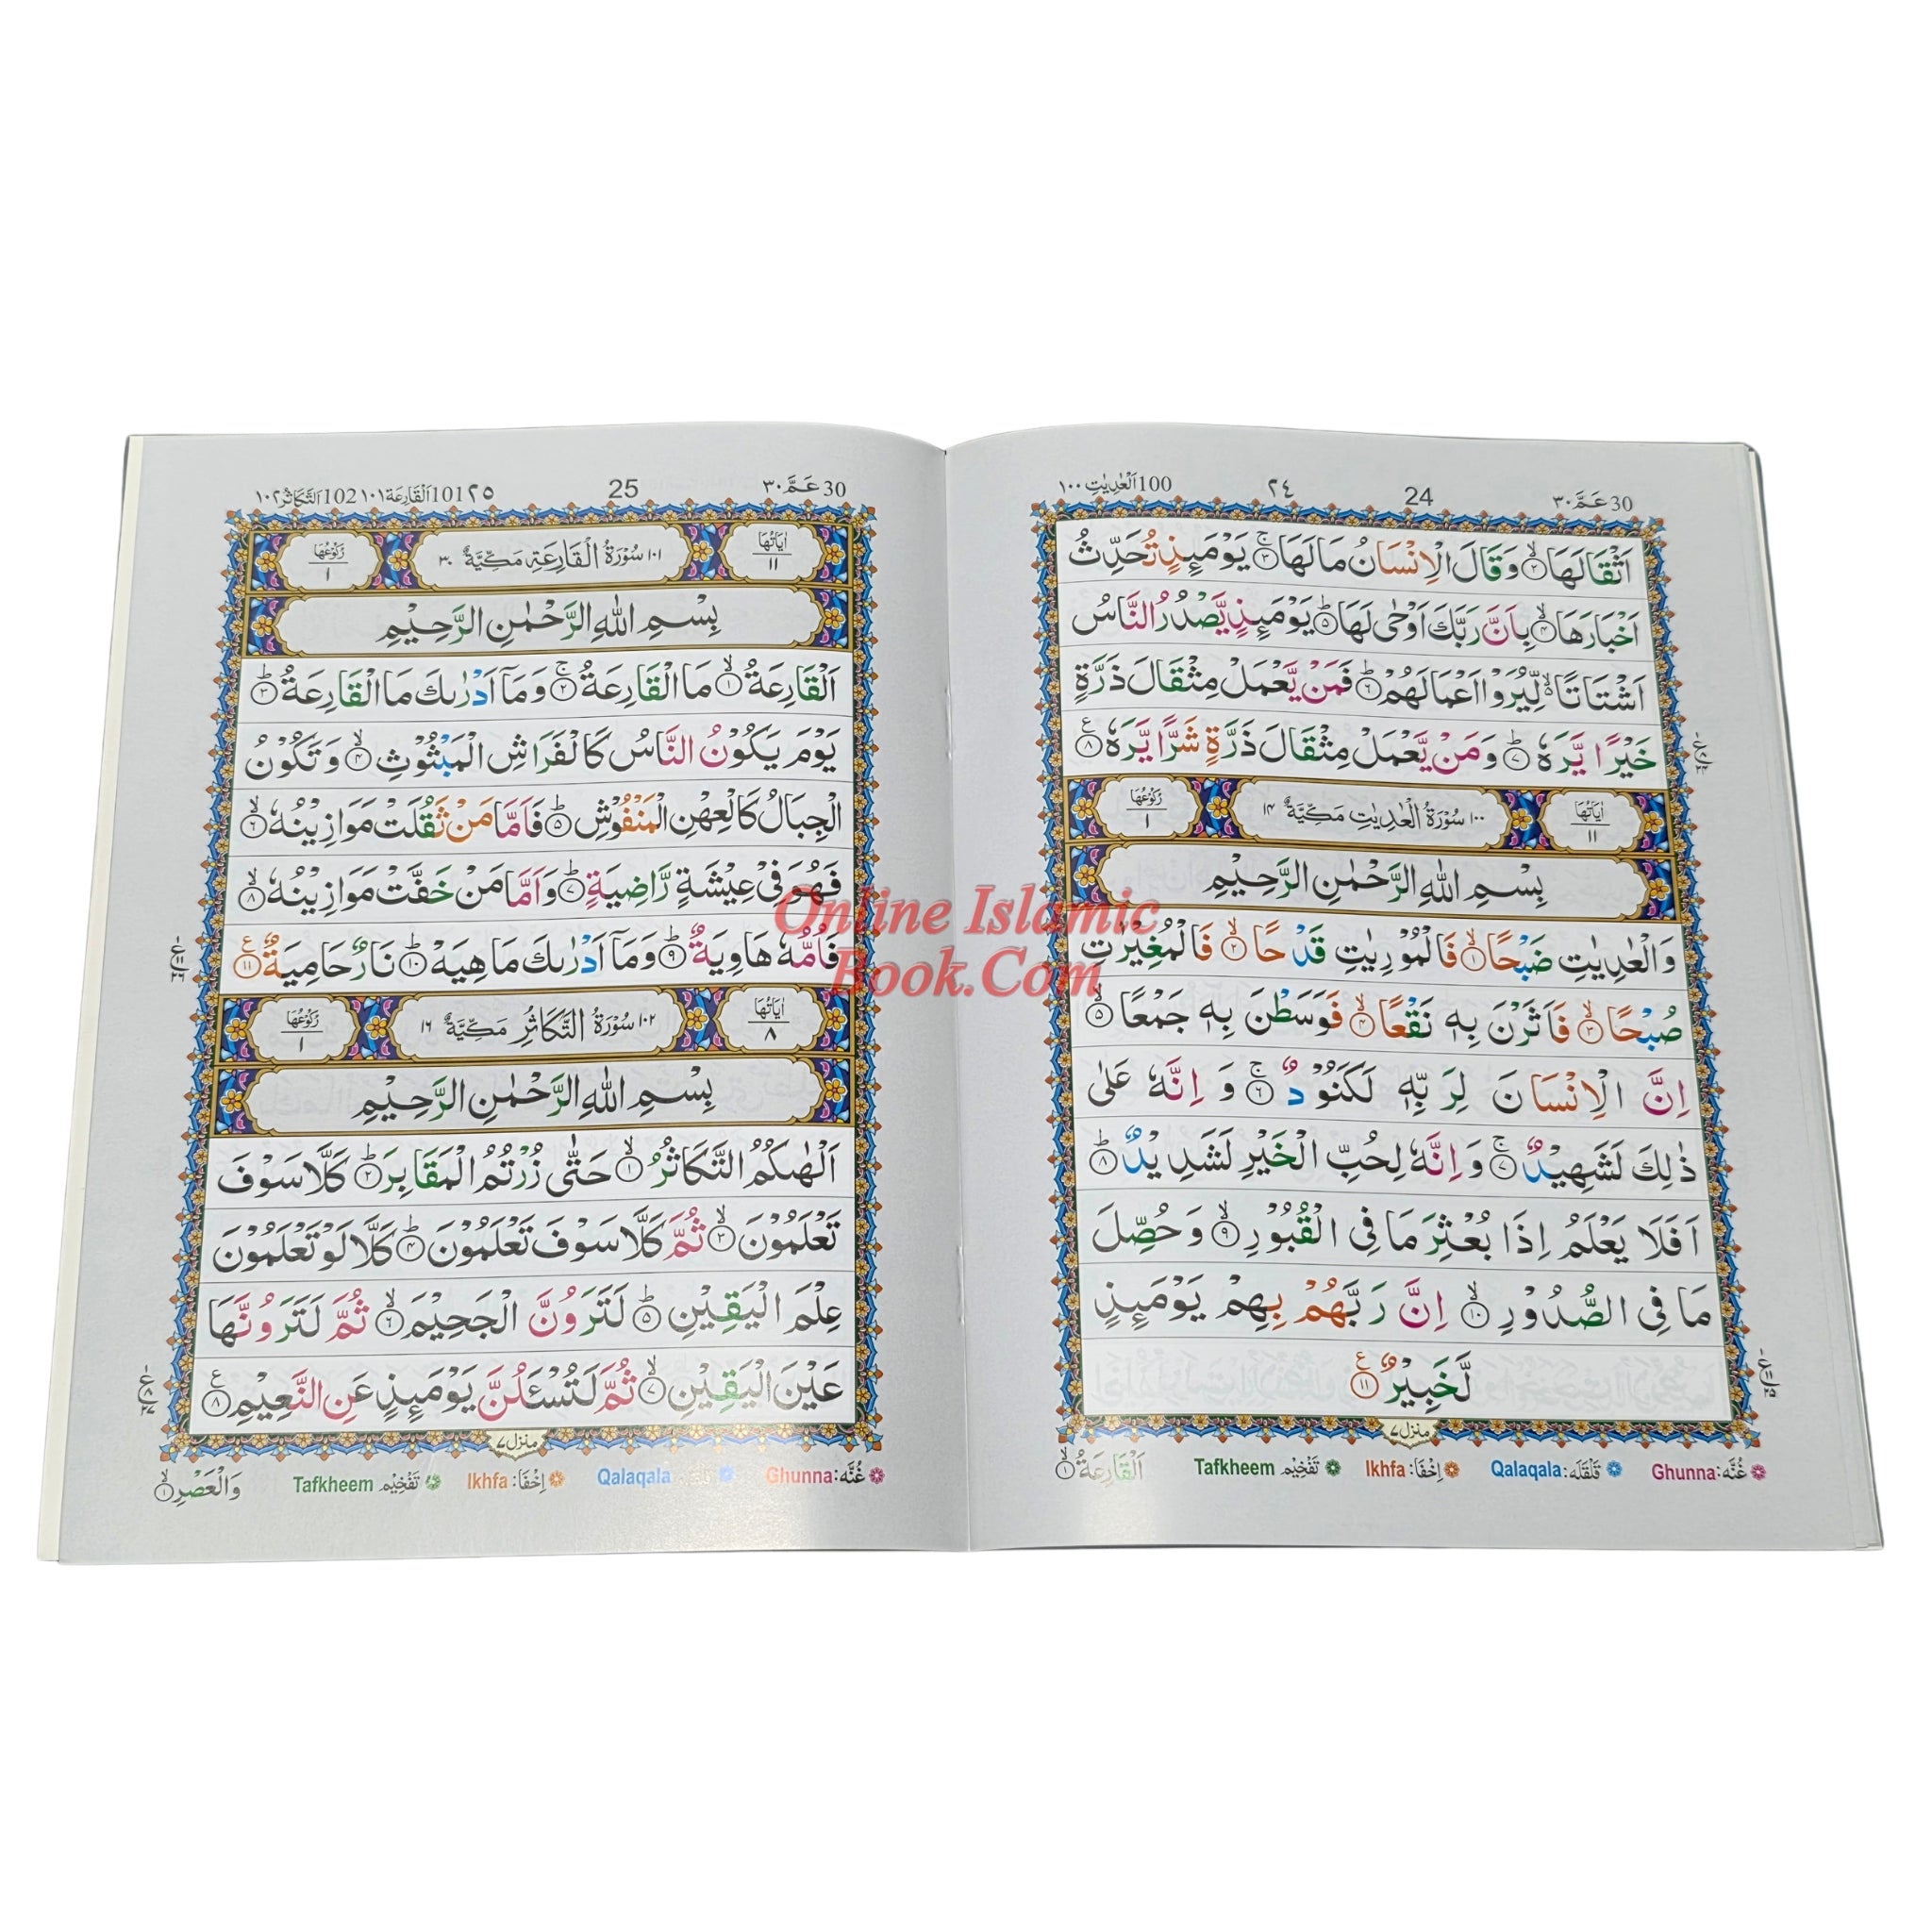 30 عَـمَّ ٣٠ 24 ٢٤ 100 اَلْعٰدِيٰت ١٠٠
اَثْقَالَهَا ۙ‏﴿۲﴾ وَقَالَ الْاِنْسَانُ مَا لَهَا ۚ‏﴿۳﴾ يَوْمَئِذٍ تُحَدِّثُ
اَخْبَارَهَا ۙ‏﴿۴﴾ بِاَنَّ رَبَّكَ اَوْحٰى لَهَا ؕ‏﴿۵﴾ يَوْمَئِذٍ يَّصْدُرُ النَّاسُ
اَشْتَاتًا ۙ لِّيُرَوْا اَعْمَالَهُمْ ؕ‏﴿۶﴾ فَمَنْ يَّعْمَلْ مِثْقَالَ ذَرَّةٍ
خَيْرًا يَّرَهٗ ؕ‏﴿۷﴾ وَمَنْ يَّعْمَلْ مِثْقَالَ ذَرَّةٍ شَرًّا يَّرَهٗ ﴿۸﴾
اٰيَاتُهَا ١١ ١٠٠ سُوْرَةُ الْعٰدِيٰتِ مَكِّيَّةٌ ١٤ رُكُوْعُهَا ١
بِسْمِ اللّٰهِ الرَّحْمٰنِ الرَّحِيْمِ
وَالْعٰدِيٰتِ ضَبْحًا ۙ‏﴿۱﴾ فَالْمُوْرِيٰتِ قَدْحًا ۙ‏﴿۲﴾ فَالْمُغِيْرٰتِ
صُبْحًا ۙ‏﴿۳﴾ فَاَثَرْنَ بِهٖ نَقْعًا ۙ‏﴿۴﴾ فَوَسَطْنَ بِهٖ جَمْعًا ۙ‏﴿۵﴾
اِنَّ الْاِنْسَانَ لِرَبِّهٖ لَكَنُوْدٌ ۚ‏﴿۶﴾ وَ اِنَّهٗ عَلٰى
ذٰلِكَ لَشَهِيْدٌ ۚ‏﴿۷﴾ وَاِنَّهٗ لِحُبِّ الْخَيْرِ لَشَدِيْدٌ ؕ‏﴿۸﴾
اَفَلَا يَعْلَمُ اِذَا بُعْثِرَ مَا فِى الْقُبُوْرِ ۙ‏﴿۹﴾ وَحُصِّلَ
مَا فِى الصُّدُوْرِ ۙ‏﴿۱۰﴾ اِنَّ رَبَّهُمْ بِهِمْ يَوْمَئِذٍ
لَّخَبِيْرٌ ﴿۱۱﴾
منزل ٧
Ghunna: غُنَّه Qalaqala: قَلْقَلَه Ikhfa: اِخْفَا Tafkheem تَفْخِيْم اَلْقَارِعَةُ ۙ‏﴿۱﴾
30 عَـمَّ ٣٠ 25 ٢٥ 101 اَلْقَارِعَة ١٠١ 102 اَلتَّكَاثُر ١٠٢
اٰيَاتُهَا ١١ ١٠١ سُوْرَةُ الْقَارِعَةِ مَكِّيَّةٌ ٣٠ رُكُوْعُهَا ١
بِسْمِ اللّٰهِ الرَّحْمٰنِ الرَّحِيْمِ
اَلْقَارِعَةُ ۙ‏﴿۱﴾ مَا الْقَارِعَةُ ۚ‏﴿۲﴾ وَمَاۤ اَدْرٰىكَ مَا الْقَارِعَةُ ؕ‏﴿۳﴾
يَوْمَ يَكُوْنُ النَّاسُ كَالْفَرَاشِ الْمَبْثُوْثِ ۙ‏﴿۴﴾ وَتَكُوْنُ
الْجِبَالُ كَالْعِهْنِ الْمَنْفُوْشِ ؕ‏﴿۵﴾ فَاَمَّا مَنْ ثَقُلَتْ مَوَازِيْنُهٗ ۙ‏﴿۶﴾
فَهُوَ فِىْ عِيْشَةٍ رَّاضِيَةٍ ؕ‏﴿۷﴾ وَاَمَّا مَنْ خَفَّتْ مَوَازِيْنُهٗ ۙ‏﴿۸﴾
فَاُمُّهٗ هَاوِيَةٌ ؕ‏﴿۹﴾ وَمَاۤ اَدْرٰىكَ مَا هِيَهْ ؕ‏﴿۱۰﴾ نَارٌ حَامِيَةٌ ﴿۱۱﴾
اٰيَاتُهَا ٨ ١٠٢ سُوْرَةُ التَّكَاثُرِ مَكِّيَّةٌ ١٦ رُكُوْعُهَا ١
بِسْمِ اللّٰهِ الرَّحْمٰنِ الرَّحِيْمِ
اَلْهٰىكُمُ التَّكَاثُرُ ۙ‏﴿۱﴾ حَتّٰى زُرْتُمُ الْمَقَابِرَ ؕ‏﴿۲﴾ كَلَّا سَوْفَ
تَعْلَمُوْنَ ۙ‏﴿۳﴾ ثُمَّ كَلَّا سَوْفَ تَعْلَمُوْنَ ؕ‏﴿۴﴾ كَلَّا لَوْ تَعْلَمُوْنَ
عِلْمَ الْيَقِيْنِ ؕ‏﴿۵﴾ لَتَرَوُنَّ الْجَحِيْمَ ۙ‏﴿۶﴾ ثُمَّ لَتَرَوُنَّهَا
عَيْنَ الْيَقِيْنِ ۙ‏﴿۷﴾ ثُمَّ لَتُسْـَٔلُنَّ يَوْمَئِذٍ عَنِ النَّعِيْمِ ﴿۸﴾
منزل ٧
Ghunna: غُنَّه Qalaqala Ikhfa: اِخْفَا Tafkheem تَفْخِيْم وَالْعَصْرِ ۙ‏﴿۱﴾
Online Islamic
Book.Com